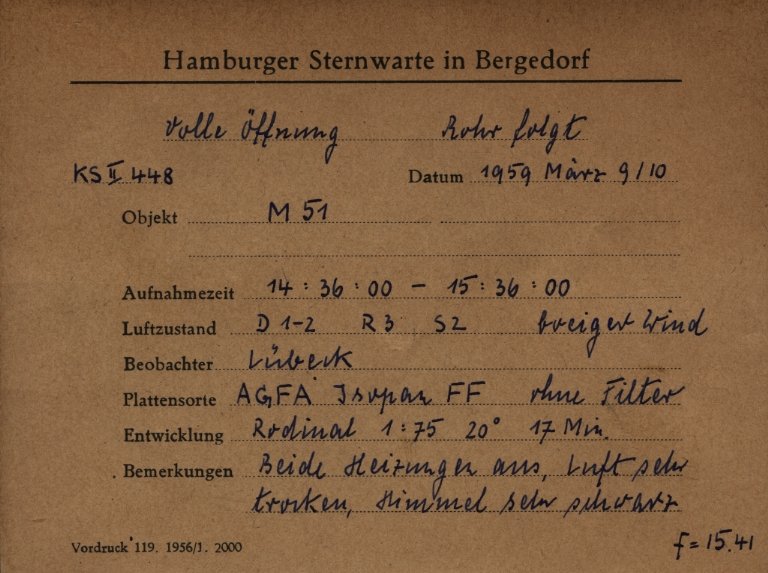 Hamburger Sternwarte in Bergedorf
Volle Öffnung Rohr folgt
KS II 448 Datum 1959 März 9/10
Objekt M 51
Aufnahmezeit 14 : 36 : 00 - 15 : 36 : 00
Luftzustand D 1-2 R 3 S 2 böeiger Wind
Beobachter Lübeck
Plattensorte AGFA Isopan FF ohne Filter
Entwicklung Rodinal 1:75 20° 17 Min.
Bemerkungen Beide Heizungen aus, Luft sehr
trocken, Himmel sehr schwarz
Vordruck 119. 1956/1. 2000
f = 15.41